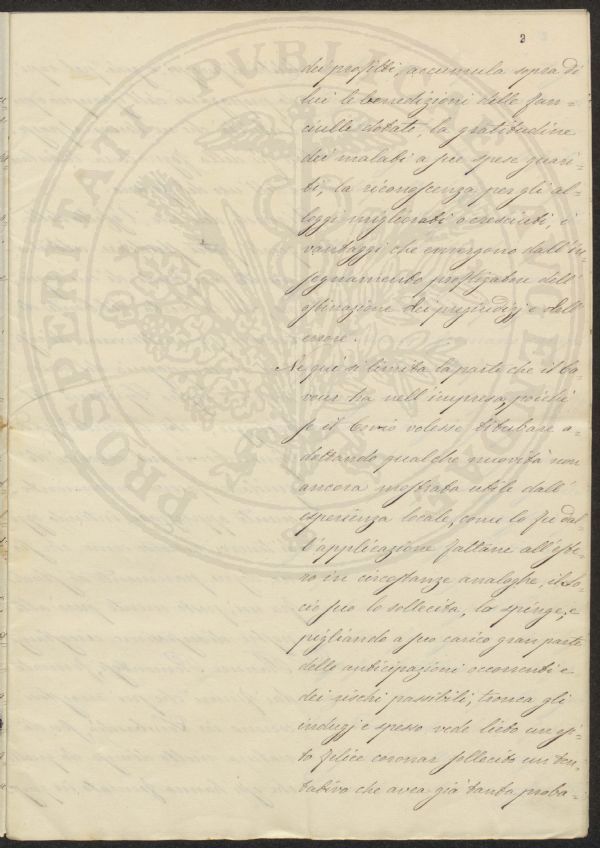 3
dei profitti, accumula sopra di
lui le benedizioni delle fan-
ciulle dotate, la gratitudine
dei malati a sue spese guari-
ti, la riconoscenza per gli al-
loggi migliorati o cresciuti, i
vantaggi che emergono dall'in-
segnamento profligatore dell'
ostinazione dei pregiudizj e dell'
errore.
Ne quì si limita la parte che il Ca-
vour ha nell'impresa, poichè
se il Corio volesse titubare a-
dottando qualche nuovità non
ancora mostrata utile dall'
esperienza locale, come lo fu dal-
l'applicazione fattane all'este-
ro in circostanze analoghe, il so-
cio suo lo sollecita, lo spinge, e
pigliando a suo carico gran parte
delle anticipazioni occorrenti e
dei rischi possibili, tronca gli
indugj e spesso vede lieto un esi-
to felice coronar sollecito un ten-
tativo che avea già tanta proba-
PROSPERITATI PUBLICAE AUGENDAE